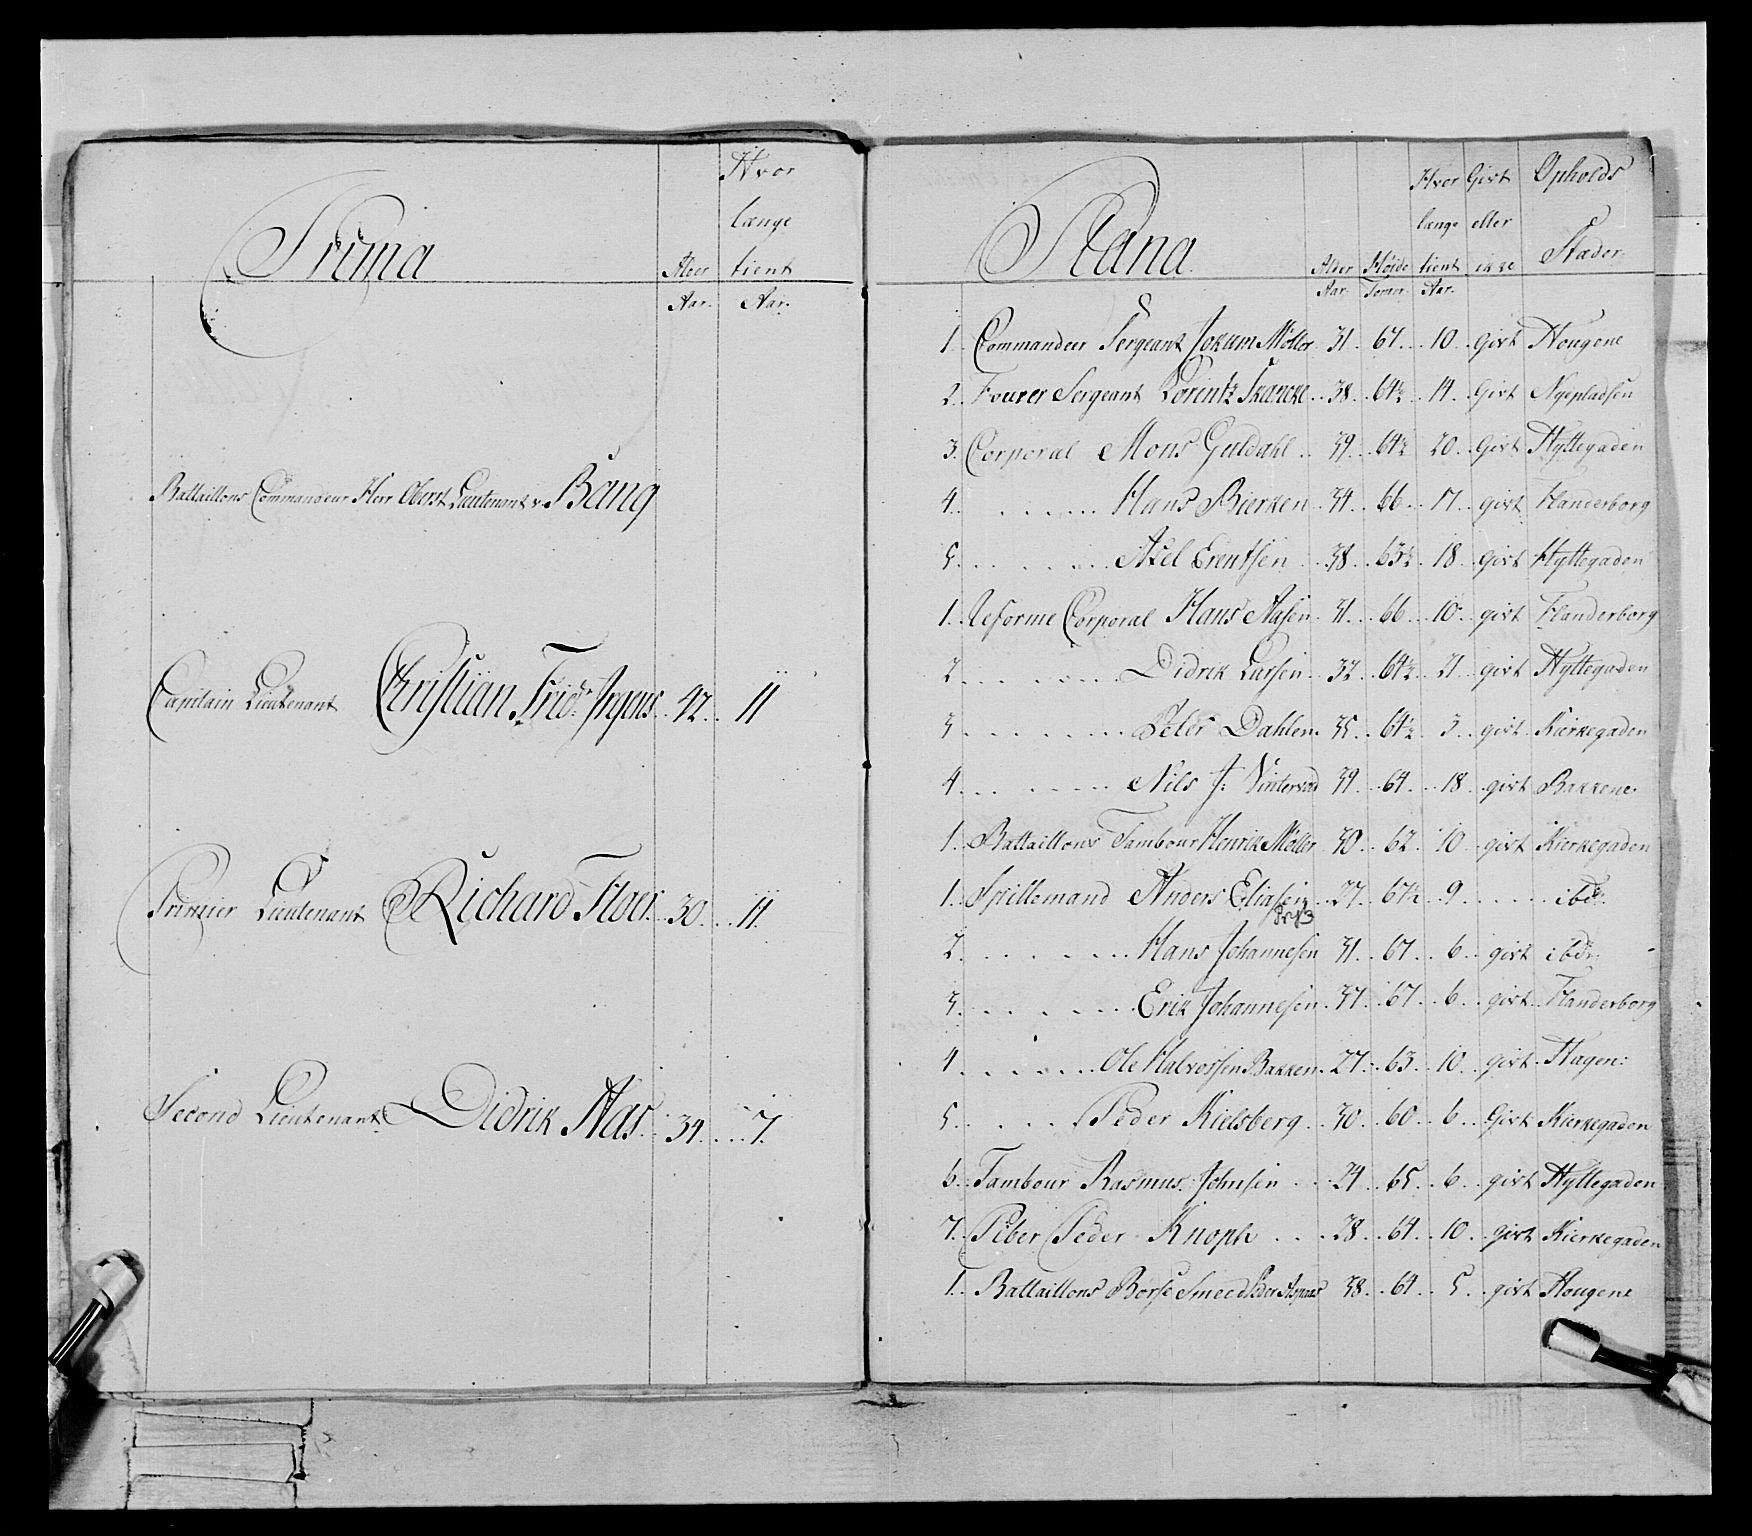 Prima
Alder
Aar.
Hvor
længe
tient
Aar.
Battaillons Commandeur Herr Oberst Lieutenant v. Bang
Capitain Lieutenant Christian Frid: Irgens .. 42 .. 11
Primier Lieutenant Richard Floer .. 30 ... 11.
Second Lieutenant Didrik Aas .. 34 .... 7.
Plana.
Alder
Aar.
Høide
Tomer
Hvor
længe
tient
Aar.
Givt
eller
ikke
Opholds
Stæder.
1. Commandeer Sergeant Jokum Möller 31 .. 67 .. 10 .. givt Hougene
2. Fourer Sergeant Lorentz Francke .. 38 .. 64½ .. 14 .. Givt Nyepladsen
3. Corporal Mons Guldahl .. 39 .. 64½ 20 .. Givt Hyttegaden
4. ...... Hans Bierken .. 34 .. 66 .. 17 .. givt Flanderborg
5. ...... Axel Erentsen .. 38 .. 63½ .. 18 .. givt Hyttegaden
1. Reforme Corporal Hans Aasen .. 31 .. 66 .. 10 .. givt Flanderborg
2 ...... Didrik Larsen .. 32 .. 64½ .. 21 .. givt Hyttegaden
3 ...... Peter Dahlen .. 35 .. 64½ .. 3 .. givt Kierkegaden
4 ...... Nils J: .. 39 .. 64 .. 18 .. givt Bakkene.
1. Battaillons Tambour Henrik Möller 30 .. 62 .. 10 .. givt Kierkegaden
1. Spillemand Anders Eliasen .. 27 .. 67½ .. 9 ...... ibd:
2. ...... Hans Johannesen 31 .. 67 .. 6 .. givt ibd:
3. ...... Erik Johannesen .. 37 .. 67 .. 6 .. givt Flanderborg
4 ...... Ole Halvorsen Bakken .. 27 .. 63 .. 10 .. givt Hagen:
5. ...... Peder Kielsberg .. 30 .. 60 .. 6 .. Givt Kierkegaden
6. Tambour Rasmus Johnsen ... 24 .. 65 .. 6 .. givt Hyttegaden
7. Piber Peder Knoph .... 28 .. 64 .. 10 .. givt Kierkegaden
1. Battaillons Börse Smeed Peder Aspaas 38 .. 64 .. 5 .. givt Hougene